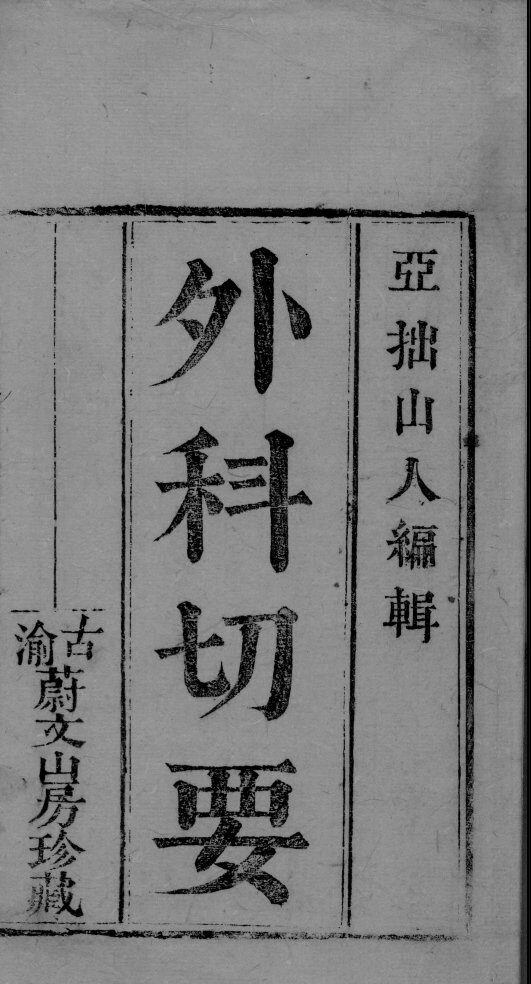 亞拙山人編輯
外科切要
古渝蔚文山房珍藏